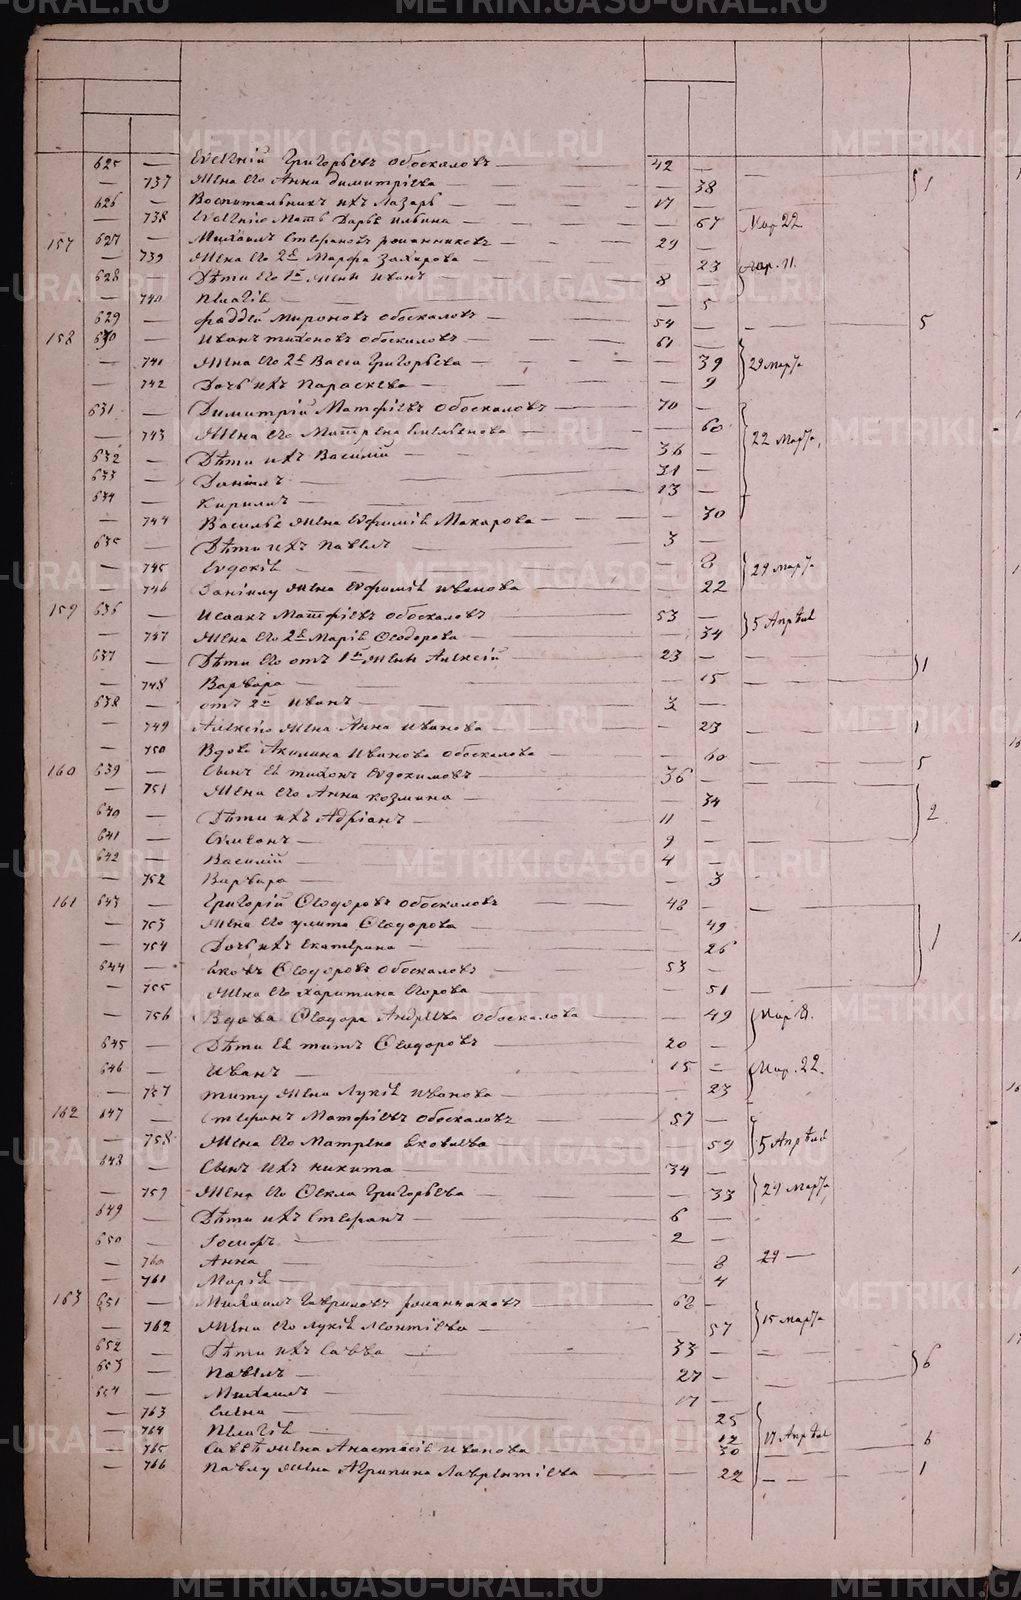 METRIKI.GASO-URAL.RU
625 — Евгеній Григорьевъ Обоскаловъ — 42 — —
— 737 Жена его Анна Димитріева — — 38 1
626 — Воспитанникъ ихъ Лазарь — 17 —
— 738 Евгенію Мать Дарья Ильина — — 67 Мар 22
157 627 — Михаилъ Стефановъ — 29 —
— 739 Жена его 2я Марфа Захарова — — 23 Апр. 11.
628 — Дѣти его 1й жены Иванъ — 8 —
— 740 Пелагія — — 5
629 — Фаддей Мироновъ Обоскаловъ — 54 — — 5
158 630 — Иванъ Тихоновъ Обоскаловъ — 61 —
— 741 Жена его 2я Васса Григорьева — — 39 29 Марта
— 742 Дочь ихъ Параскева — — 9
631 — Димитрій Матфіевъ Обоскаловъ — 70 —
— 743 Жена его Матрена Емельянова — — 60 22 Марта
632 — Дѣти ихъ Василій — 36 —
633 — Даніилъ — 31 —
634 — Кирилъ — 13 —
— 744 Василья жена Евфимія Макарова — — 30
635 — Дѣти ихъ Павелъ — 3 —
— 745 Евдокія — — 8 29 Марта
— 746 Даніилу жена Евфимія Иванова — — 22
159 636 — Исаакъ Матфіевъ Обоскаловъ — 53 — 5 Апрѣля
— 747 Жена его 2я Марія Ѳеодорова — — 34
637 — Дѣти его отъ 1й жены Алексій — 23 — — 1
— 748 Варвара — — 15
638 — отъ 2й Иванъ — 3 —
— 749 Алексію жена Анна Иванова — — 23 — 1
— 750 Вдова Акилина Иванова Обоскалова — — 60
160 639 — Сынъ ея Тихонъ Евдокимовъ — 36 — — 5
— 751 Жена его Анна Козмина — — 34
640 — Дѣти ихъ Адріанъ — 11 — — 2
641 — Симеонъ — 9 —
642 — Василій — 4 —
— 752 Варвара — — 3
161 643 — Григорій Ѳеодоровъ Обоскаловъ — 48 — —
— 753 Жена его Улита Ѳеодорова — — 49
— 754 Дочь ихъ Екатерина — — 26 1
644 — Яковъ Ѳеодоровъ Обоскаловъ — 53 —
— 755 Жена его Харитина Егорова — — 51 —
— 756 Вдова Ѳеодора Андреева Обоскалова — — 49 Мар.
645 — Дѣти ея Титъ Ѳеодоровъ — 20 —
646 — Иванъ — 15 — Мар. 22.
— 757 Титу жена Лукія Иванова — — 23
162 647 — Стефанъ Матфіевъ Обоскаловъ — 57 —
— 758 Жена его Матрена Яковлева — — 59 5 Апрѣля
648 — Сынъ ихъ Никита — 34 —
— 759 Жена его Ѳекла Григорьева — — 33 29 Марта
649 — Дѣти ихъ Стефанъ — 6 —
650 — Іосифъ — 2 —
— 760 Анна — — 8 29 —
— 761 Марія — — 4
163 651 — Михаилъ Гавриловъ — 68 —
— 762 Жена его Лукія Леонтіева — — 57 15 Марта
652 — Дѣти ихъ Савва — 33 — —
653 — Павелъ — 27 — 6
654 — Михаилъ — 17 —
— 763 Елена — — 25
— 764 Пелагія — — 12 17 Апрѣля
— 765 Саввѣ жена Анастасія Иванова — — 30 6
— 766 Павлу жена Агрипина Лаврентіева — — 22 — 1